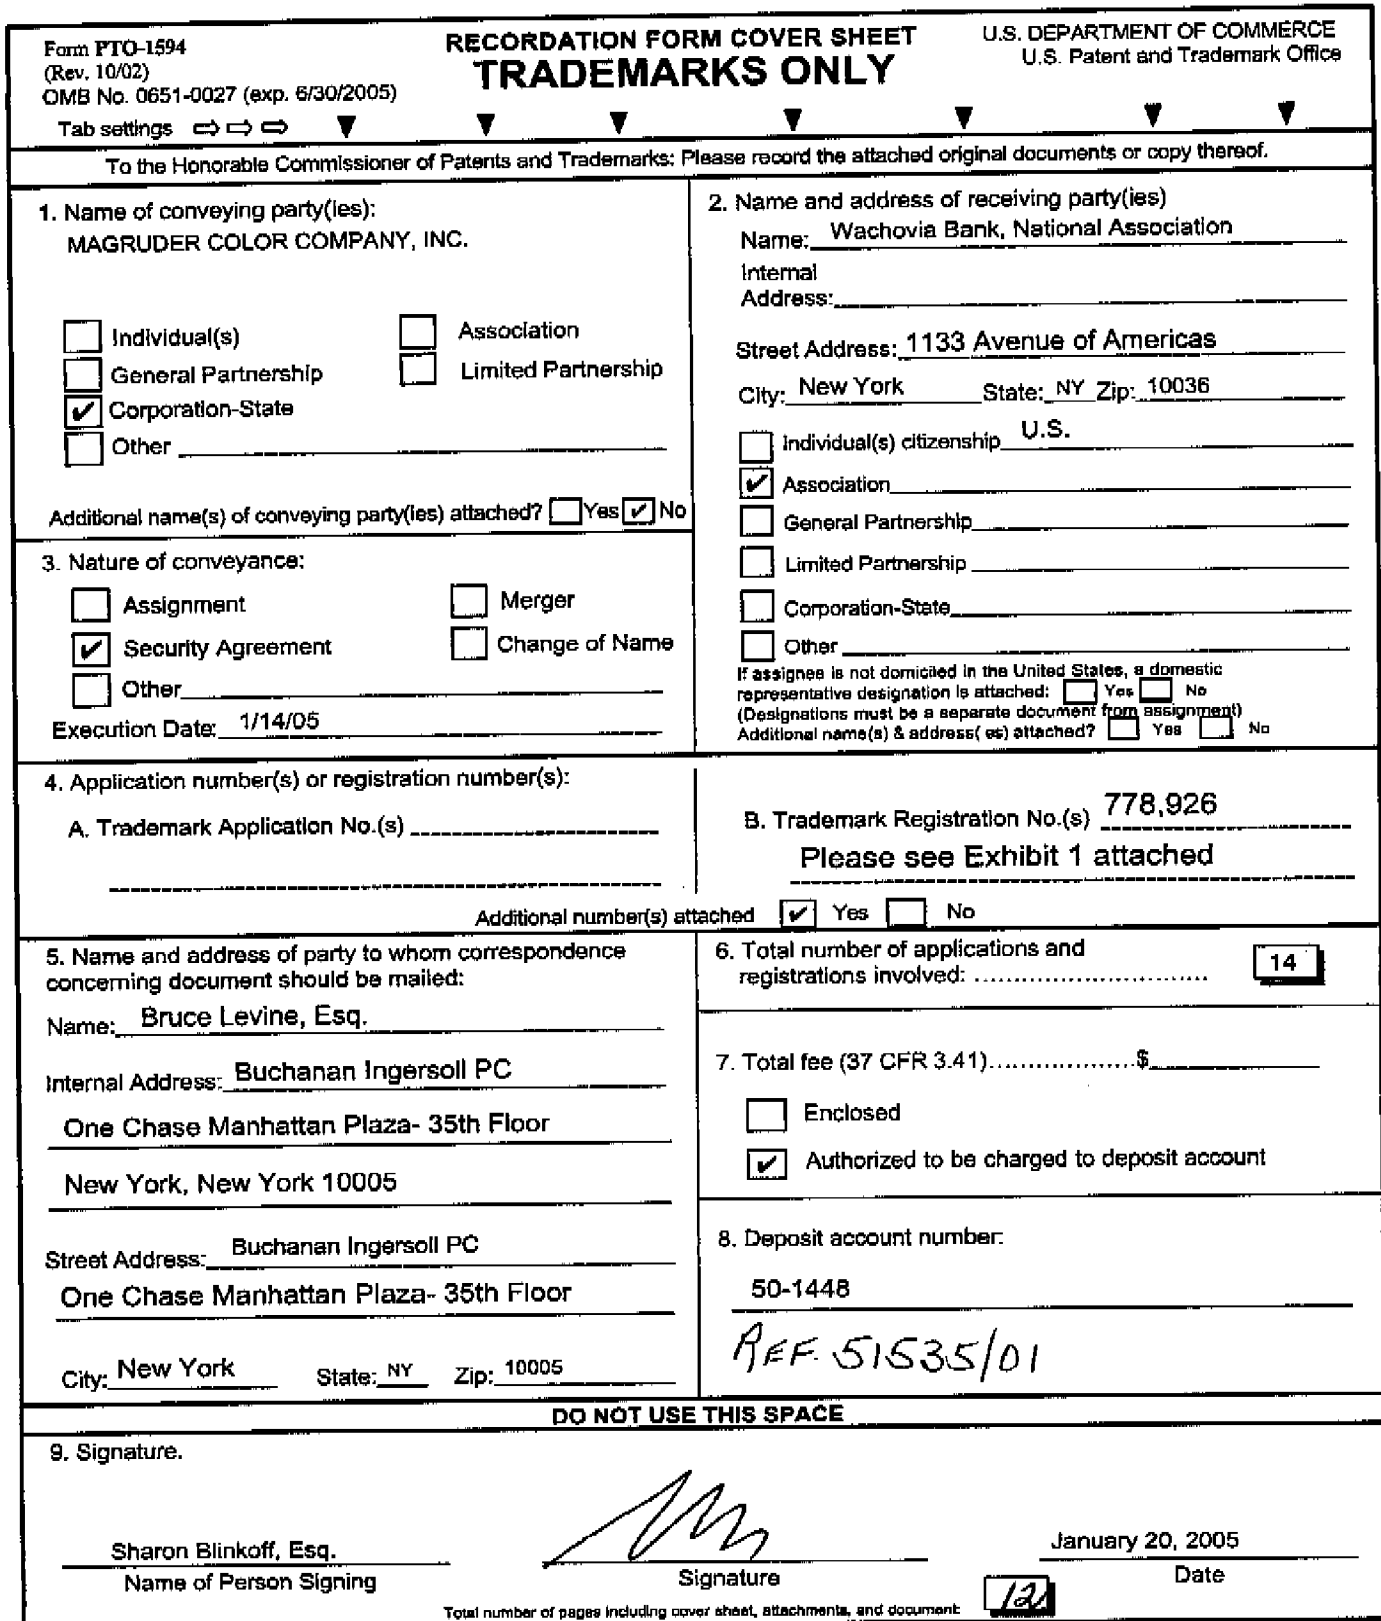 Form PTO-1594
(Rev. 10/02)
OMB No. 0651-0027 (exp. 6/30/2005)
Tab settings ⇨ ⇨ ⇨ ▼ ▼ ▼ ▼ ▼ ▼ ▼
RECORDATION FORM COVER SHEET
TRADEMARKS ONLY
U.S. DEPARTMENT OF COMMERCE
U.S. Patent and Trademark Office
To the Honorable Commissioner of Patents and Trademarks: Please record the attached original documents or copy thereof.
1. Name of conveying party(ies):
MAGRUDER COLOR COMPANY, INC.
Individual(s) Association
General Partnership Limited Partnership
✔ Corporation-State
Other
Additional name(s) of conveying party(ies) attached? Yes ✔ No
2. Name and address of receiving party(ies)
Name: Wachovia Bank, National Association
Internal
Address:
Street Address: 1133 Avenue of Americas
City: New York State: NY Zip: 10036
Individual(s) citizenship U.S.
✔ Association
General Partnership
Limited Partnership
Corporation-State
Other
If assignee is not domiciled in the United States, a domestic
representative designation is attached: Yes No
(Designations must be a separate document from assignment)
Additional name(s) & address( es) attached? Yes No
3. Nature of conveyance:
Assignment Merger
✔ Security Agreement Change of Name
Other
Execution Date: 1/14/05
4. Application number(s) or registration number(s):
A. Trademark Application No.(s)
B. Trademark Registration No.(s) 778,926
Please see Exhibit 1 attached
Additional number(s) attached ✔ Yes No
5. Name and address of party to whom correspondence
concerning document should be mailed:
Name: Bruce Levine, Esq.
Internal Address: Buchanan Ingersoll PC
One Chase Manhattan Plaza- 35th Floor
New York, New York 10005
Street Address: Buchanan Ingersoll PC
One Chase Manhattan Plaza- 35th Floor
City: New York State: NY Zip: 10005
6. Total number of applications and
registrations involved: ........................... 14
7. Total fee (37 CFR 3.41)..................$
Enclosed
✔ Authorized to be charged to deposit account
8. Deposit account number:
50-1448
REF. 51535/01
DO NOT USE THIS SPACE
9. Signature.
Sharon Blinkoff, Esq.
Name of Person Signing
Signature
January 20, 2005
Date
Total number of pages including cover sheet, attachments, and document: 12